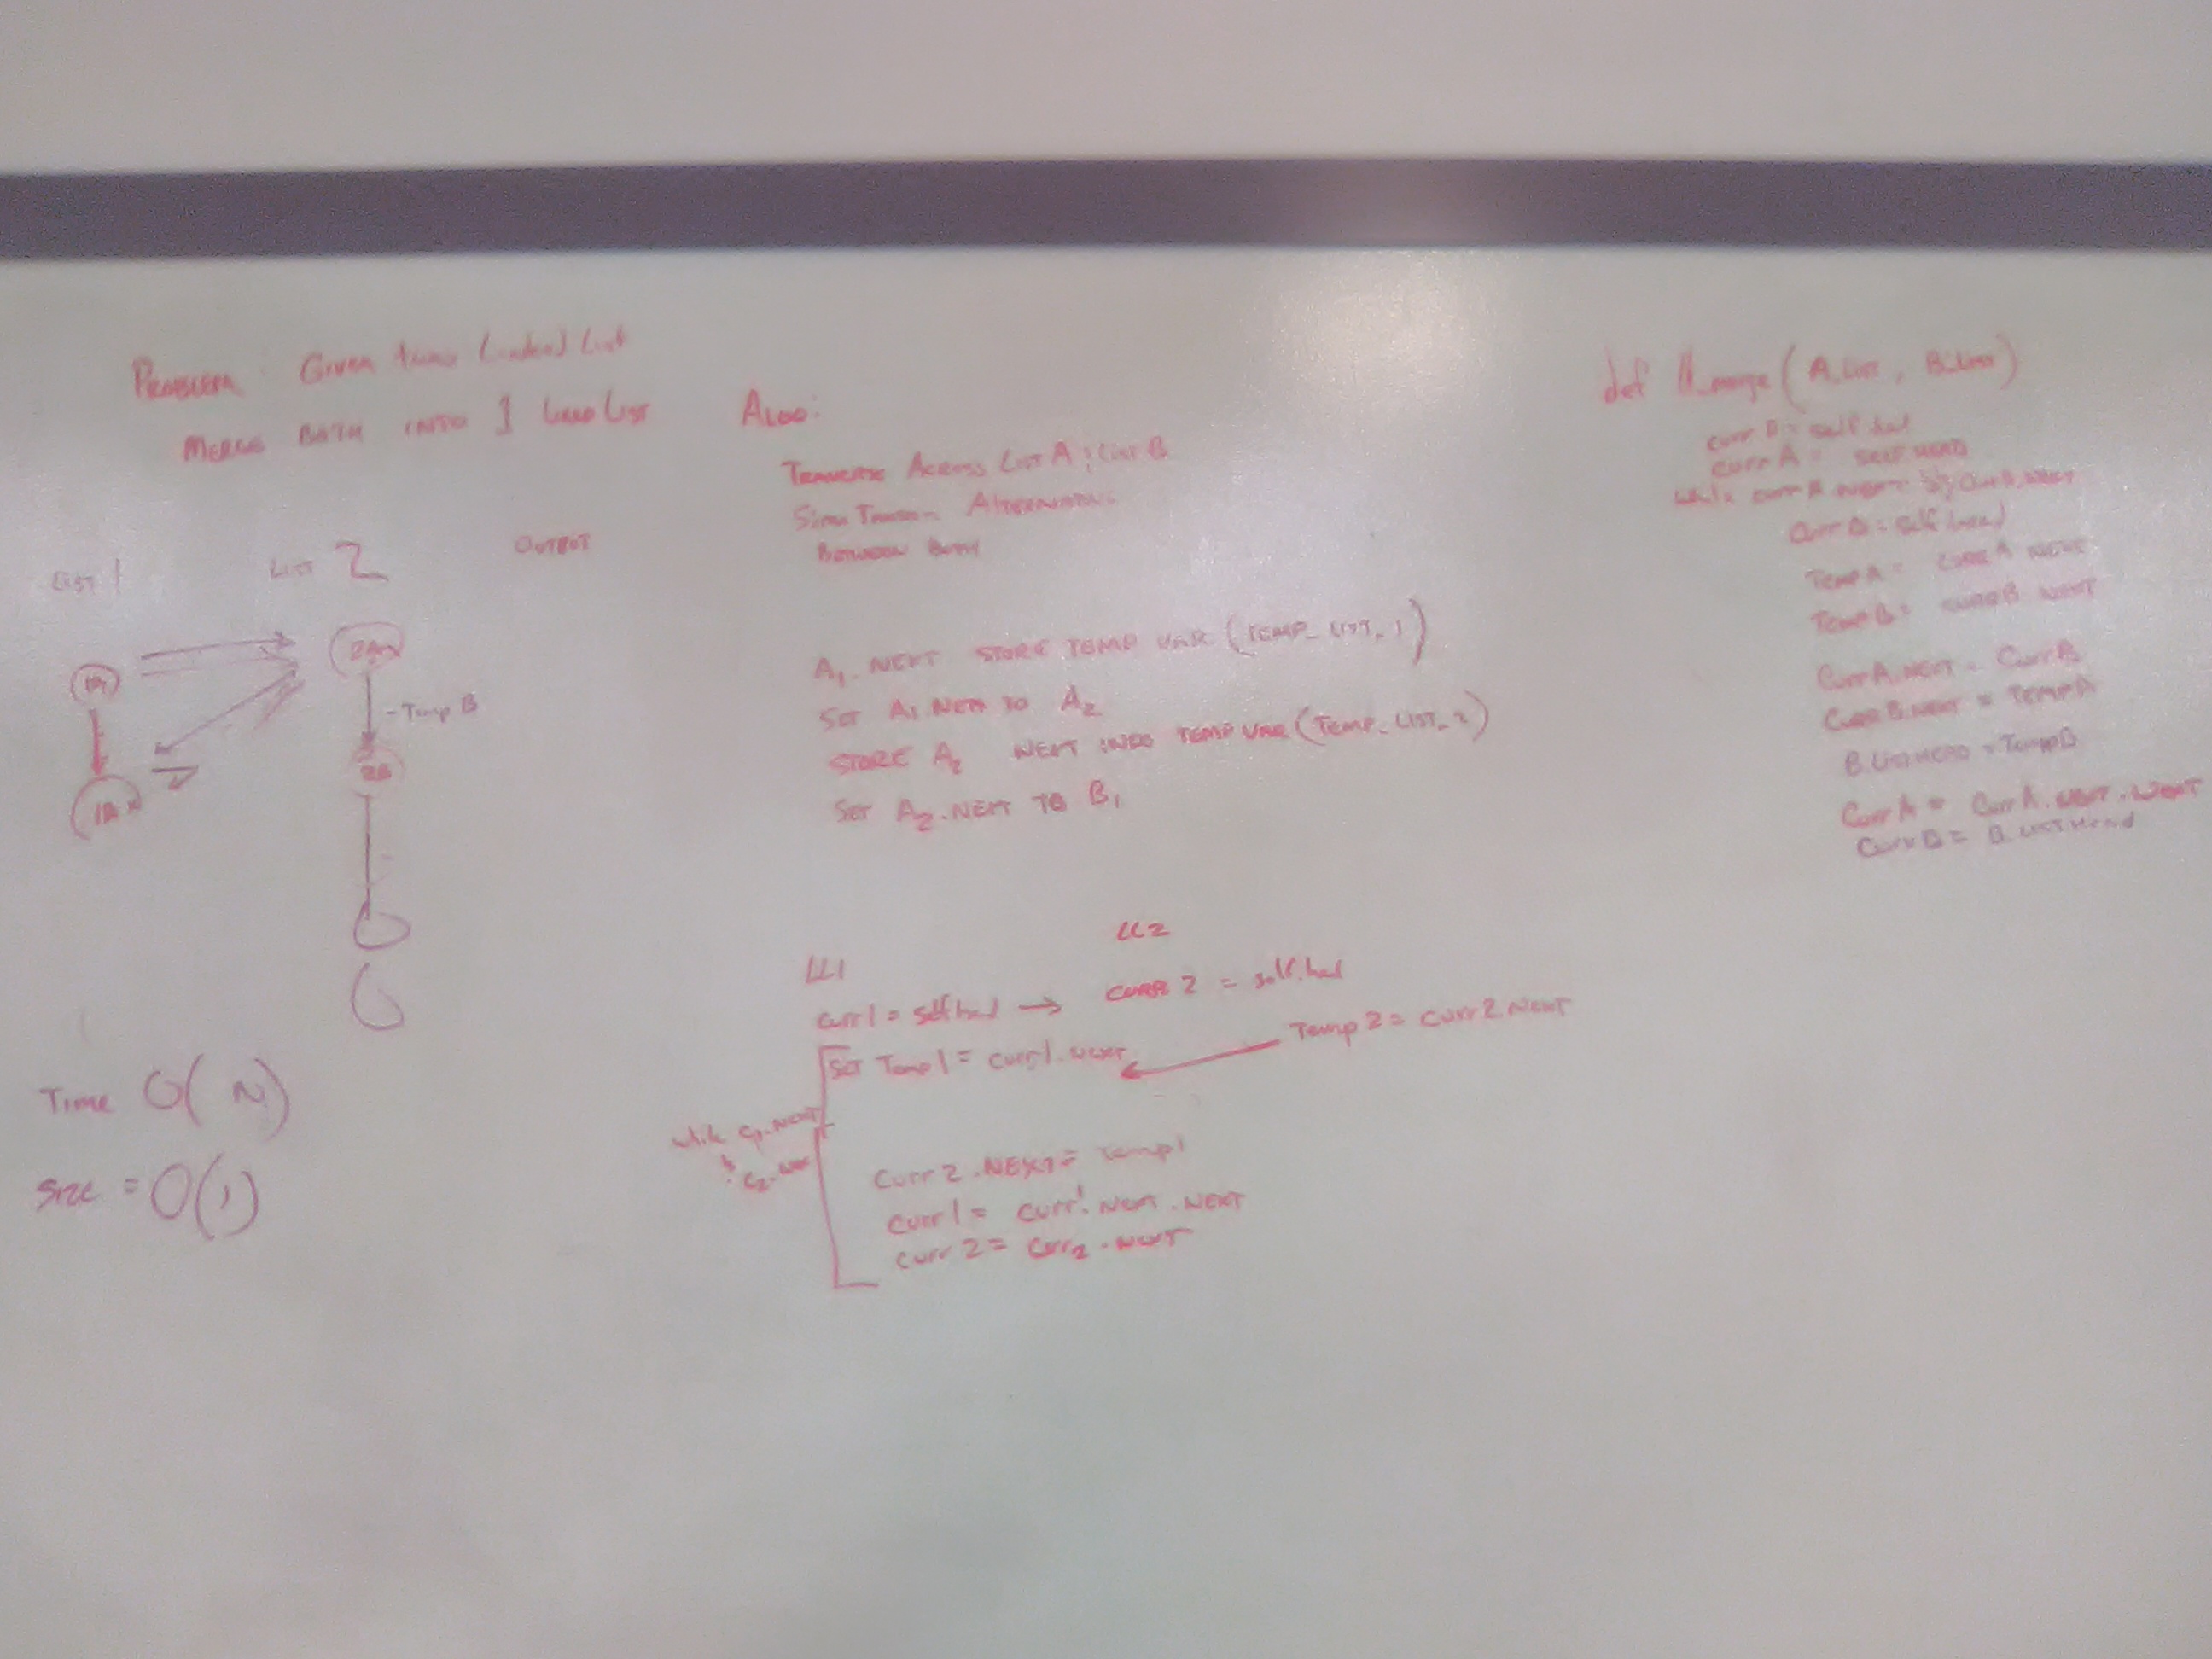 PROBLEM: GIVEN two Linked List
MERGE BOTH INTO 1 LINKD LIST
LIST 1
LIST 2
OUTPUT
- Temp B
2B
Time O(N)
SIZE = O(1)
ALGO:
TRAVERSE ACROSS LIST A & LIST B
ALTERNATING
BETWEEN BOTH
A1.NEXT STORE TEMP VAR (TEMP_LIST_1)
SET A1.NEXT TO A2
STORE A2 NEXT INTO TEMP VAR (TEMP_LIST_2)
SET A2.NEXT TO B1
LL1
LL2
curr1 = self.head → CURR 2 = self.head
SET Temp1 = curr1.NEXT
Temp2 = curr2.NEXT
while c1.NEXT
& c2.NEXT
Curr2.NEXT = Temp1
Curr1 = curr1.Next.NEXT
Curr2 = Curr2.NEXT
def ll_merge(A_LIST, B_LIST)
curr B = self.head
curr A = SELF.HEAD
while curr A.NEXT && CurrB.NEXT
Curr B = self.head
TEMP A = CURR A NEXT
TEMP B = CURR B NEXT
CurrA.NEXT = CurrB
CURRB.NEXT = TEMPA
B.LIST.HEAD = TempB
CurrA = CurrA.NEXT.NEXT
CurrB = B.LIST.Head